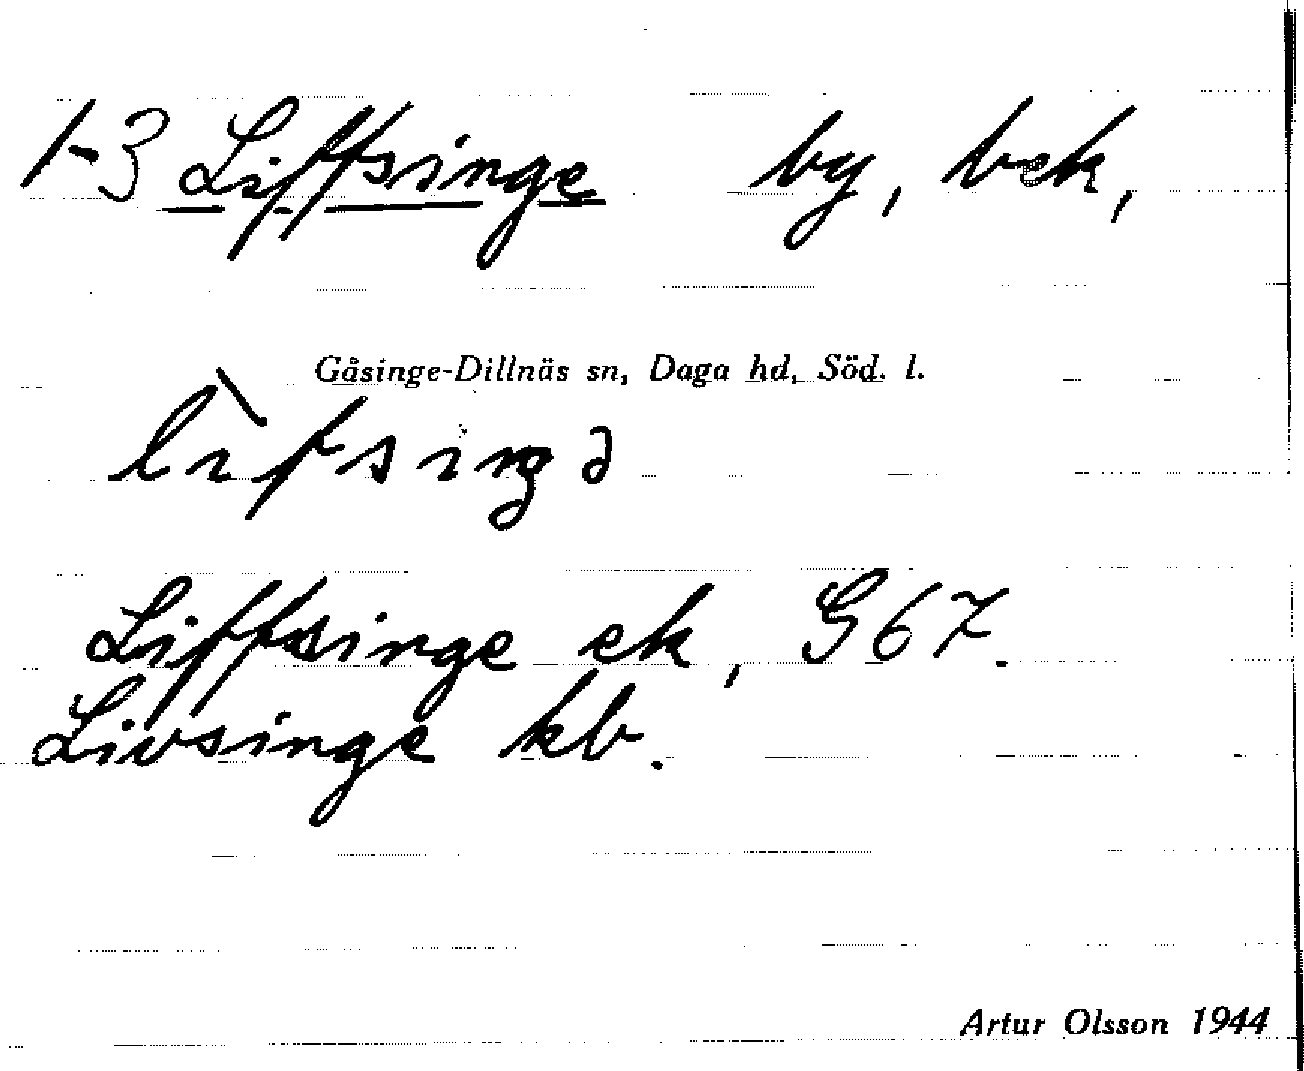 1-3 Liffsinge by, bek,
Gåsinge-Dillnäs sn, Daga hd, Söd. l.
lìfsiŋə
Liffsinge ek, G67.
Livsinge kb.
Artur Olsson 1944